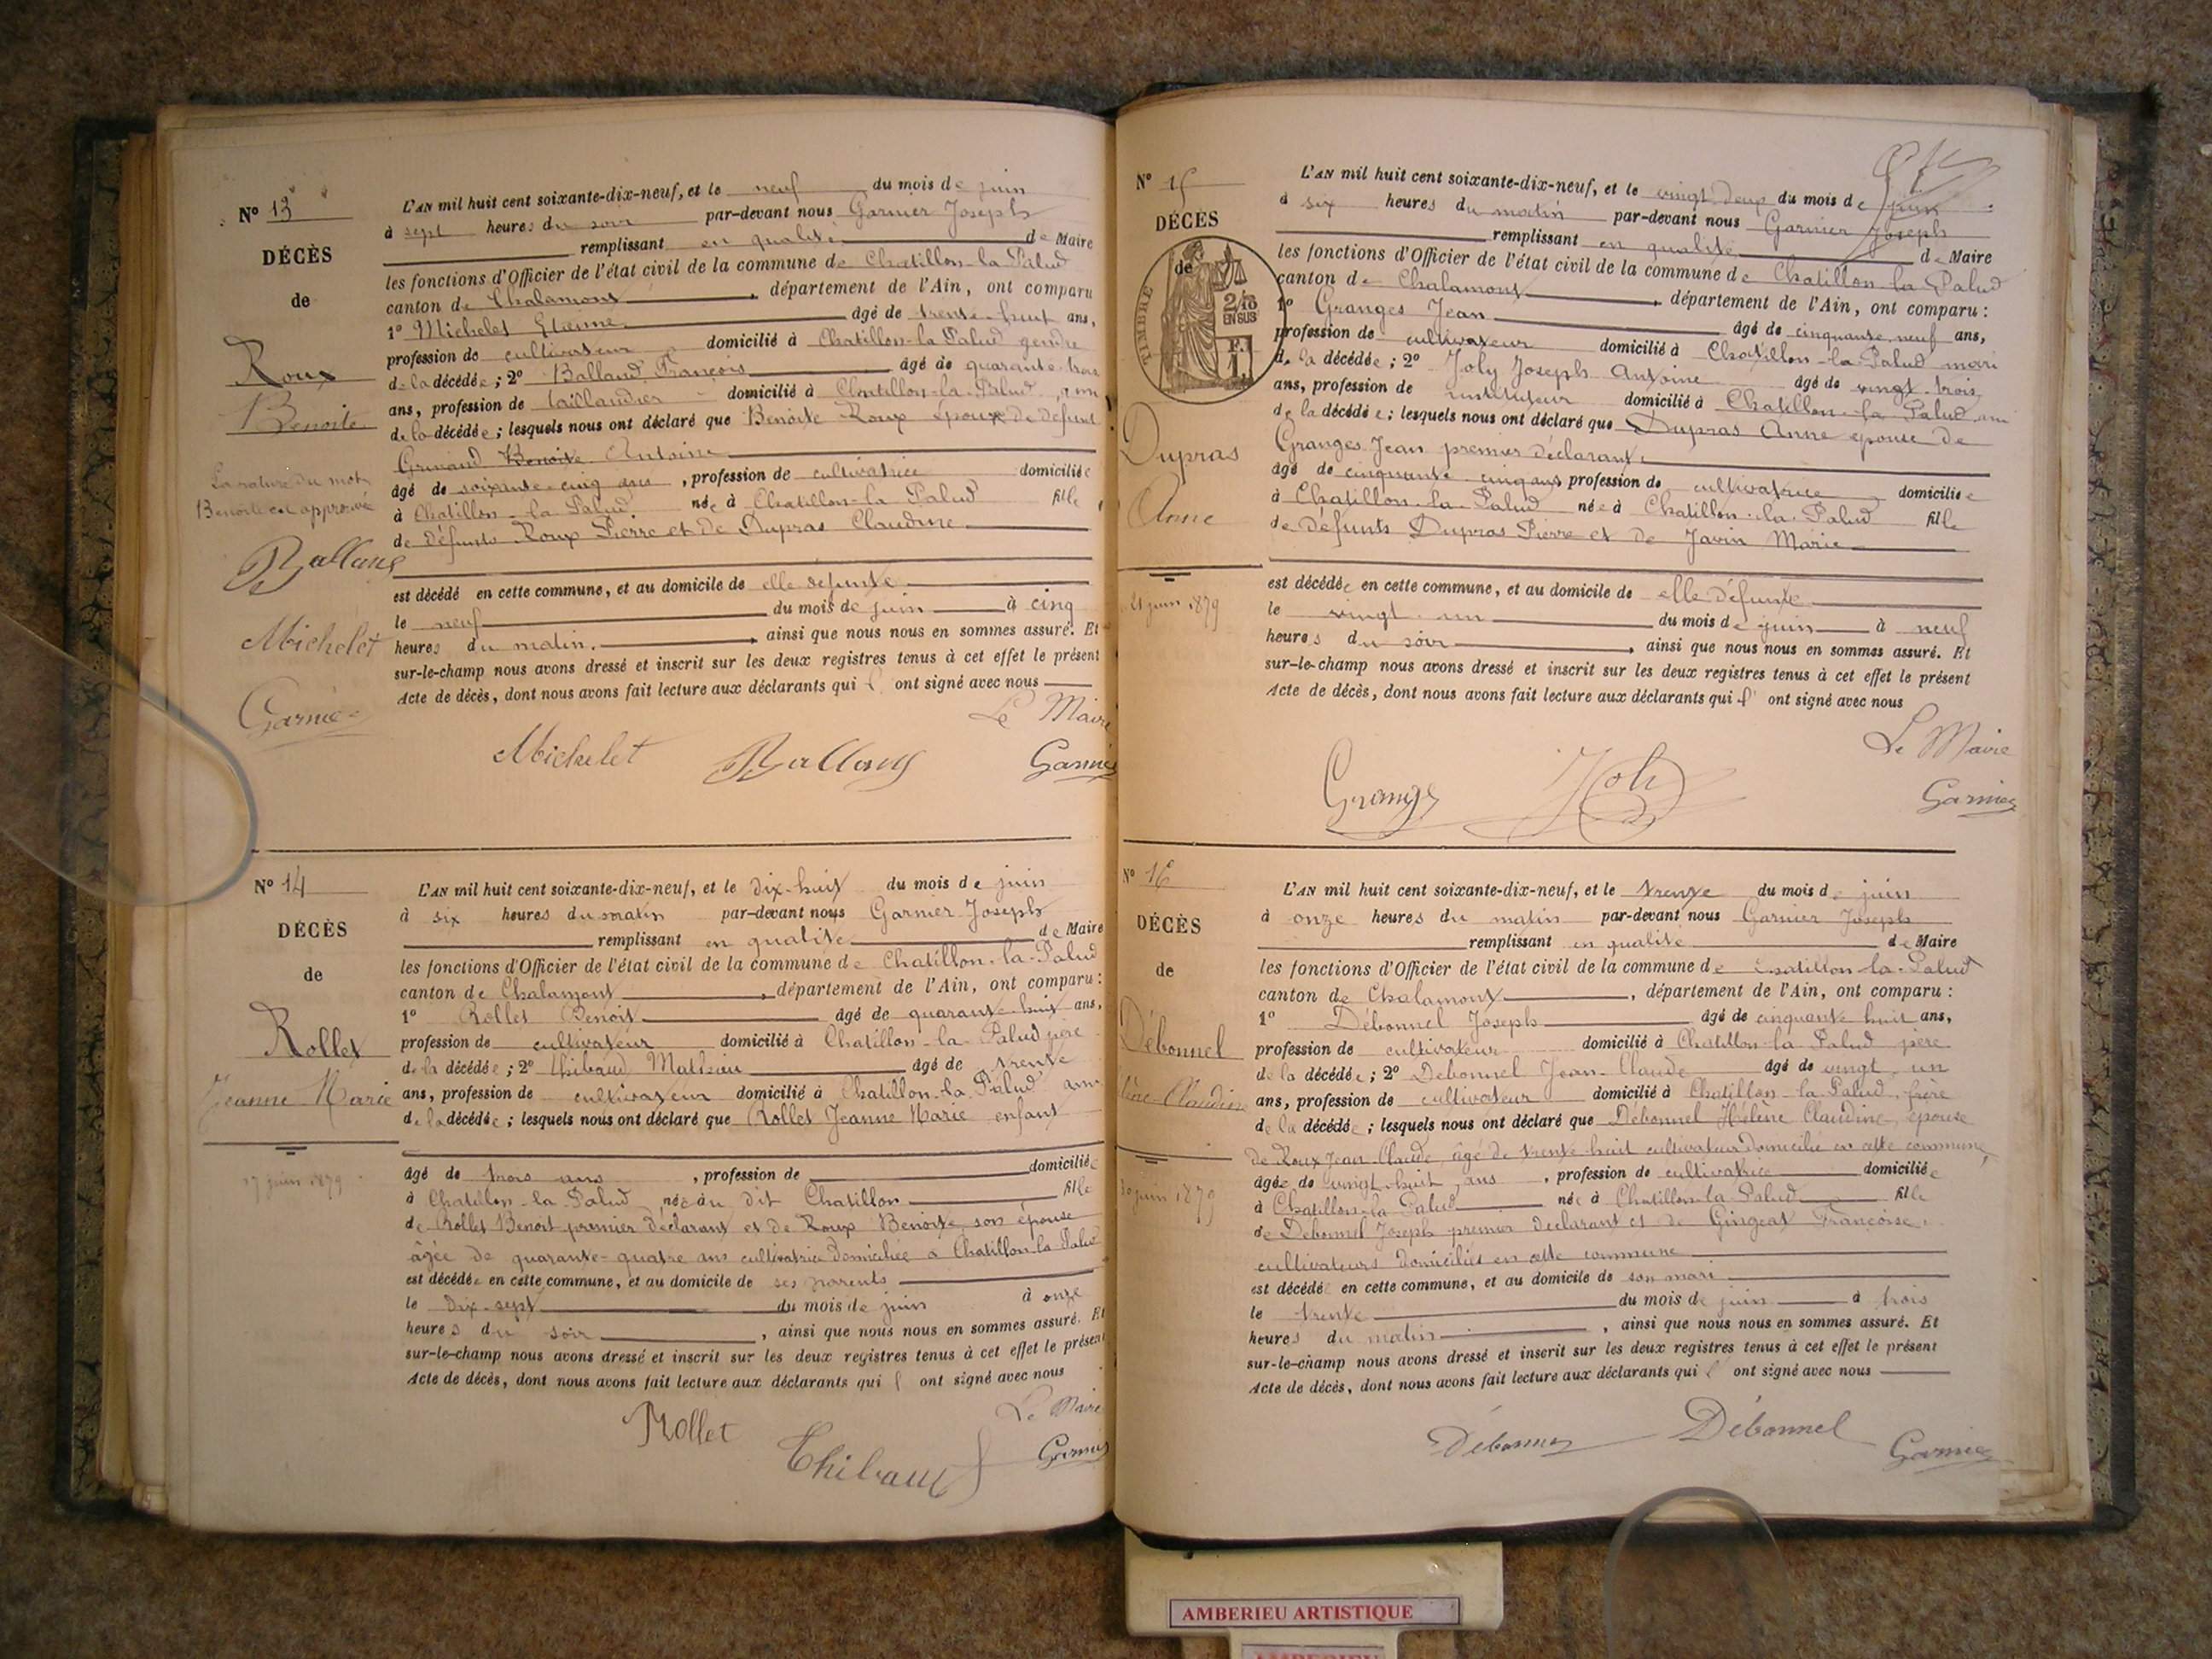 N° 13
DÉCÈS
de
Roux
Benoite
La rature du mot
Benoite est approuvé
Balland
Michelet
Garnier
L'AN mil huit cent soixante-dix-neuf, et le neuf du mois de juin
à sept heures du soir par-devant nous Garnier Joseph
remplissant en qualité de Maire
les fonctions d'Officier de l'état civil de la commune de Chatillon-la-Palud
canton de Chalamont, département de l'Ain, ont comparu
1° Michelet Etienne âgé de trente-huit ans,
profession de cultivateur domicilié à Chatillon-la-Palud gendre
de la décédée; 2° Balland François âgé de quarante-trois
ans, profession de taillandier domicilié à Chatillon-la-Palud, ami
de la décédée; lesquels nous ont déclaré que Benoite Roux épouse de défunt
Benoite Antoine
âgé de soixante-cinq ans, profession de cultivatrice domiciliée
à Chatillon-la-Palud née à Chatillon-la-Palud fille
de défunts Roux Pierre et de Dupras Claudine
est décédé en cette commune, et au domicile de elle défunte
le neuf du mois de juin à cinq
heures du matin, ainsi que nous nous en sommes assuré. Et
sur-le-champ nous avons dressé et inscrit sur les deux registres tenus à cet effet le présent
Acte de décès, dont nous avons fait lecture aux déclarants qui l' ont signé avec nous
Le Maire
Michelet Balland Garnier
N° 14
DÉCÈS
de
Rollet
Jeanne Marie
17 juin 1879
L'AN mil huit cent soixante-dix-neuf, et le dix-huit du mois de juin
à six heures du matin par-devant nous Garnier Joseph
remplissant en qualité de Maire
les fonctions d'Officier de l'état civil de la commune de Chatillon-la-Palud
canton de Chalamont, département de l'Ain, ont comparu:
1° Rollet Benoit âgé de quarante-huit ans,
profession de cultivateur domicilié à Chatillon-la-Palud père
de la décédée; 2° Thibaud Mathieu âgé de trente
ans, profession de cultivateur domicilié à Chatillon-la-Palud ami
de la décédée; lesquels nous ont déclaré que Rollet Jeanne Marie enfant
âgé de trois ans, profession de domiciliée
à Chatillon-la-Palud, née au dit Chatillon fille
de Rollet Benoit premier déclarant et de Roux Benoite, son épouse
âgée de quarante-quatre ans cultivatrice domiciliée à Chatillon-la-Palud
est décédée en cette commune, et au domicile de ses parents
le dix-sept du mois de juin à onze
heures du soir, ainsi que nous nous en sommes assuré. Et
sur-le-champ nous avons dressé et inscrit sur les deux registres tenus à cet effet le présent
Acte de décès, dont nous avons fait lecture aux déclarants qui l' ont signé avec nous
Le Maire
Rollet Thibaud Garnier
N° 15
DÉCÈS
de
TIMBRE
2/10
EN SUS
Dupras
Anne
21 juin 1879
L'AN mil huit cent soixante-dix-neuf, et le vingt-deux du mois de juin
à six heures du matin par-devant nous Garnier Joseph
remplissant en qualité de Maire
les fonctions d'Officier de l'état civil de la commune de Chatillon-la-Palud
canton de Chalamont, département de l'Ain, ont comparu:
1° Granges Jean âgé de cinquante-neuf ans,
profession de cultivateur domicilié à Chatillon-la-Palud mari
de la décédée; 2° Joly Joseph Antoine âgé de vingt-trois
ans, profession de instituteur domicilié à Chatillon-la-Palud ami
de la décédée; lesquels nous ont déclaré que Dupras Anne épouse de
Granges Jean premier déclarant
âgé de cinquante-cinq ans profession de cultivatrice domiciliée
à Chatillon-la-Palud née à Chatillon-la-Palud fille
de défunts Dupras Pierre et de Javin Marie
est décédée en cette commune, et au domicile de elle défunte
le vingt-un du mois de juin à neuf
heures du soir, ainsi que nous nous en sommes assuré. Et
sur-le-champ nous avons dressé et inscrit sur les deux registres tenus à cet effet le présent
Acte de décès, dont nous avons fait lecture aux déclarants qui l' ont signé avec nous
Le Maire
Granges Joly Garnier
N° 16
DÉCÈS
de
Débonnel
Hélène Claudine
30 juin 1879
L'AN mil huit cent soixante-dix-neuf, et le trente du mois de juin
à onze heures du matin par-devant nous Garnier Joseph
remplissant en qualité de Maire
les fonctions d'Officier de l'état civil de la commune de Chatillon-la-Palud
canton de Chalamont, département de l'Ain, ont comparu:
1° Débonnel Joseph âgé de cinquante-huit ans,
profession de cultivateur domicilié à Chatillon-la-Palud père
de la décédée; 2° Debonnel Jean-Claude âgé de vingt-un
ans, profession de cultivateur domicilié à Chatillon-la-Palud, frère
de la décédée; lesquels nous ont déclaré que Débonnel Hélène Claudine, épouse
de Roux Jean-Claude, âgé de trente-huit cultivateur domicilié en cette commune,
âgée de vingt-huit ans, profession de cultivatrice domiciliée
à Chatillon-la-Palud née à Chatillon-la-Palud fille
de Debonnel Joseph premier déclarant et de Gingeat Françoise,
cultivateurs domiciliés en cette commune
est décédé en cette commune, et au domicile de son mari
le trente du mois de juin à trois
heures du matin, ainsi que nous nous en sommes assuré. Et
sur-le-champ nous avons dressé et inscrit sur les deux registres tenus à cet effet le présent
Acte de décès, dont nous avons fait lecture aux déclarants qui l' ont signé avec nous
Débonnel Débonnel Garnier
AMBERIEU ARTISTIQUE
AMBERIEU